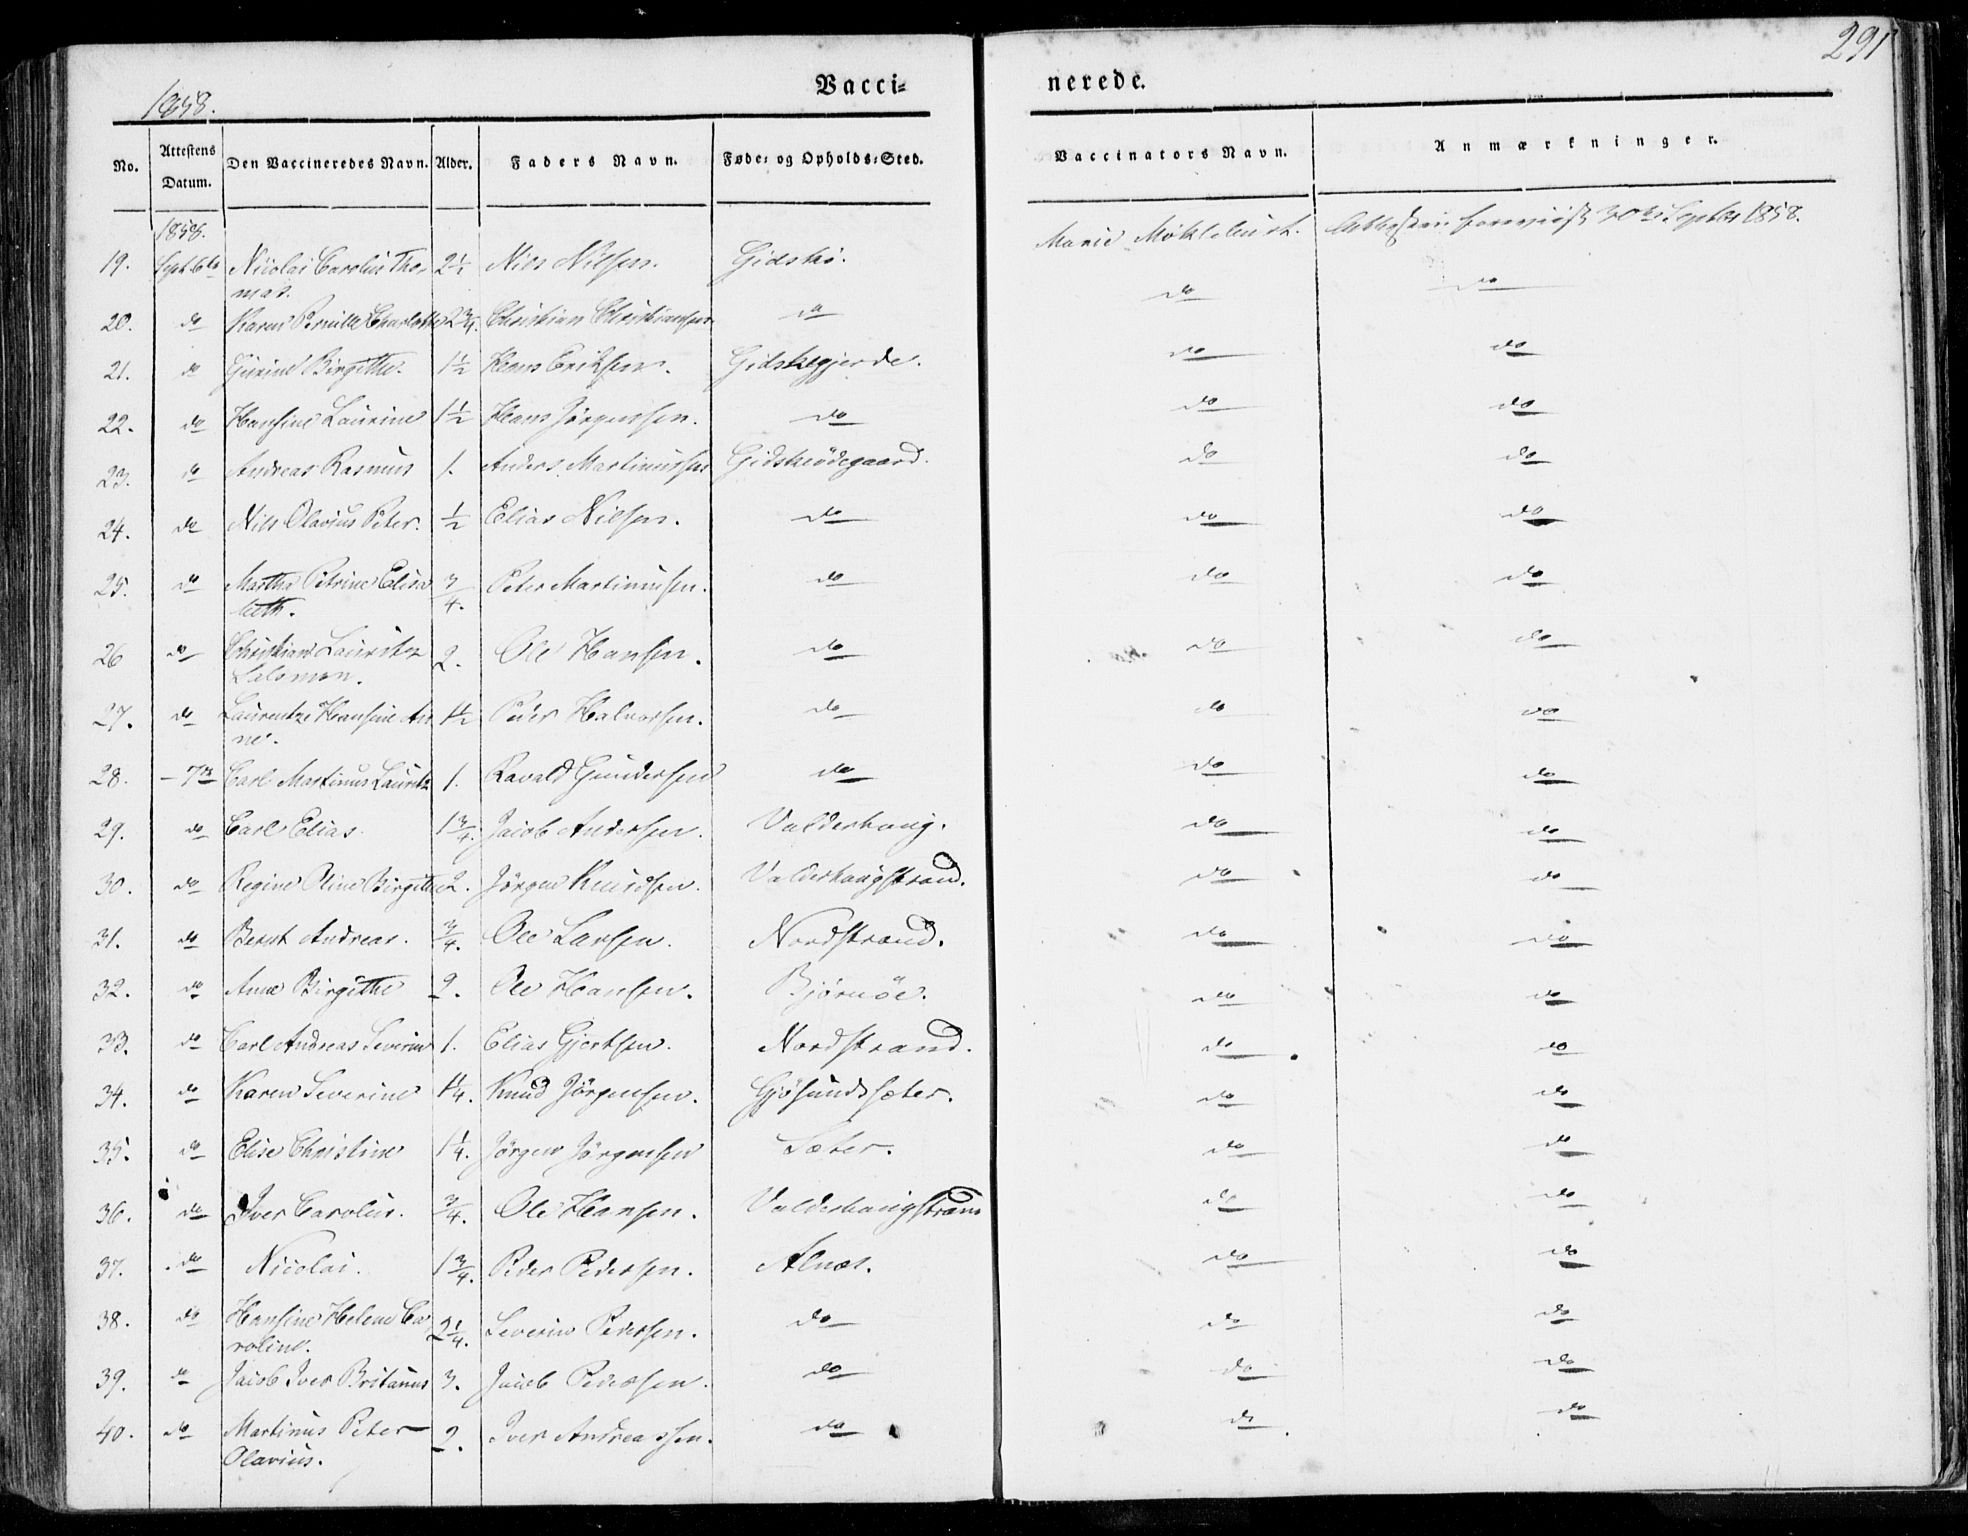 291
1858.
Vacci=
nerede.
No. Attestens Datum. Den Vaccineredes Navn. Alder. Faders Navn. Føde= og Opholds=Sted. Vaccinators Navn. Anmærkninger.
1858.
19. Sept. 6te Nicolai Carolus Tho- 2½ Nils Nilsen. Gidskö. Marie Möklebust. 30te Septbr 1858.
mas.
20. do Karen Pernille Charlotte 2¾. Christian Christiansen do do do
21. do Gurine Birgithe. 1½ Hans Eriksen. Gidskegjerde. do do
22. do Hansine Laurine 1½ Hans Jörgensen. do do do
23. do Andreas Rasmus 1. Anders Martinussen Gidskeödegaard. do do
24. do Nils Olavius Peter. ½ Elias Nielsen. do do do
25. do Martha Petrine Elisa ¾. Peter Martinussen. do do do
beth.
26 do Christian Lauritz 2. Ole Hansen. do do do
Salomon.
27. do Laurentze Hansine An 1½ Peder Halvorsen. do do do
ne.
28. – 7de Carl Martinus Lauritz 1. Ravald Gundersen do do do
29. do Carl Elias. 1¾. Jacob Andersen. Valderhaug. do do
30. do Regine Oline Birgithe 2. Jörgen Knudsen. Valderhaugstrand. do do
31. do Bernt Andreas. ¾. Ole Larsen. Nordstrand. do do
32. do Anne Birgithe 2. Ole Hansen. Björnöe. do do
33. do Carl Andreas Severin 1. Elias Gjertsen. Nordstrand. do do
34. do Karen Severine 1¼. Knud Jörgensen. Gjösundsæter. do do
35. do Elise Christine 1¼. Jörgen Jörgensen Sæter. do do
36. do Iver Carolus. ¾. Ole Hansen. Valderhaugstrand do do
37. do Nicolai. 1¾. Peder Pedersen. Alnæs. do do
38. do Hansine Helene Ca 2¼. Severin Pedersen. do do do
roline.
39. do Jacob Iver Britanus 3. Jacob Pedersen. do do do
40. do Martinus Peter 2. Iver Andreassen. do do do
Olavius.